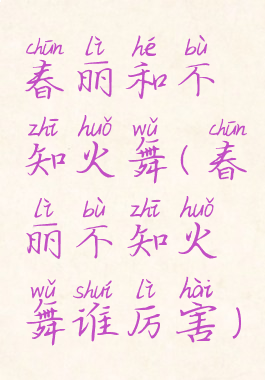 chūn lì hé bù
春丽和不
zhī huǒ wǔ chūn
知火舞(春
lì bù zhī huǒ
丽不知火
wǔ shuí lì hài
舞谁厉害)